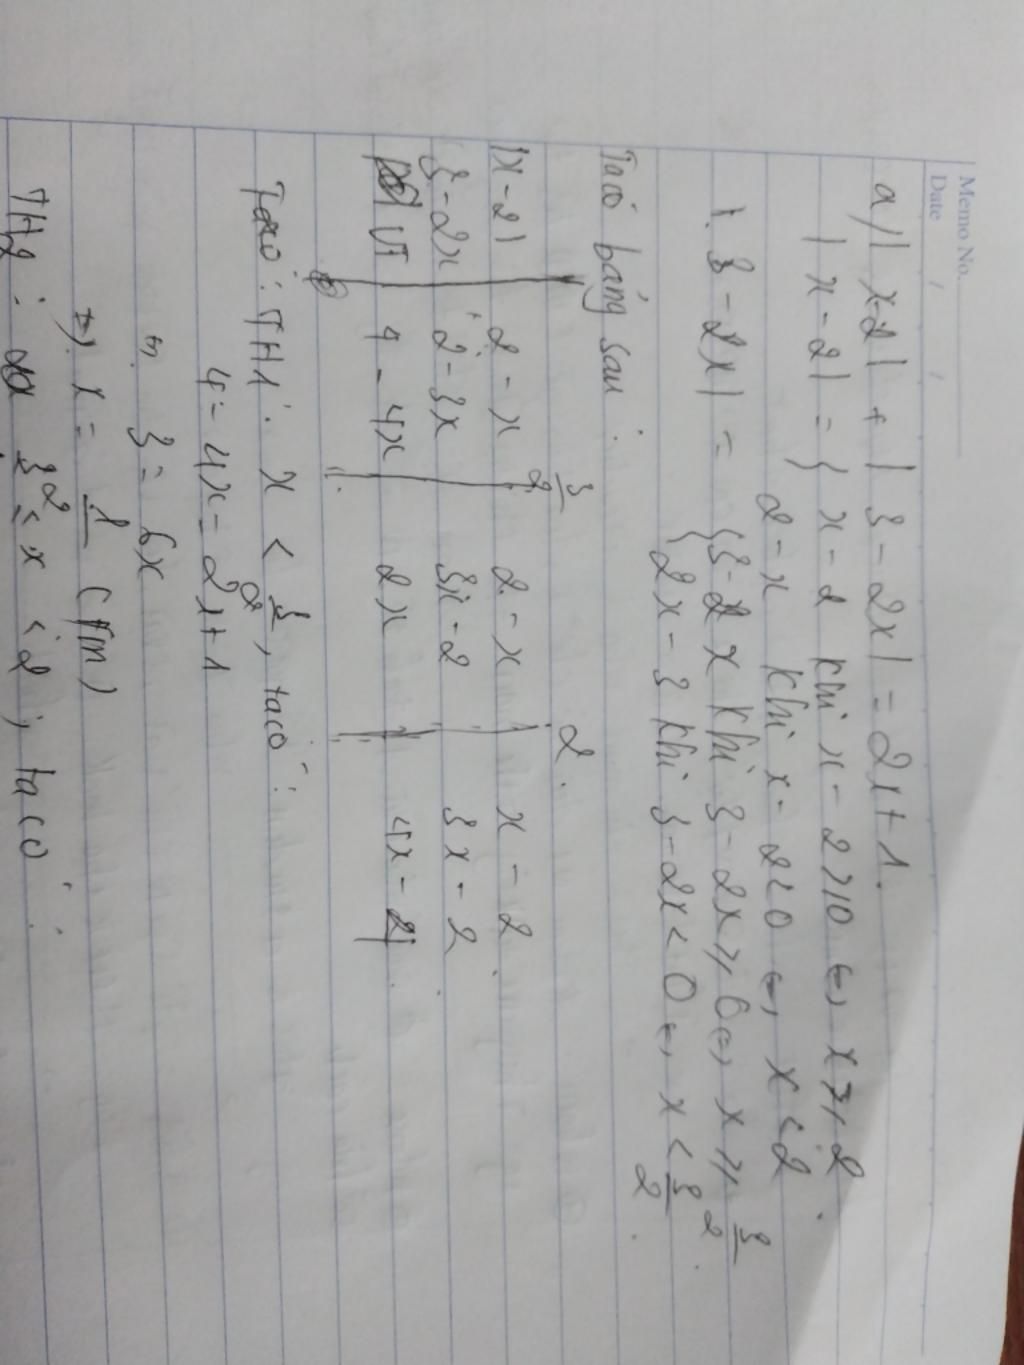 Memo No.
Date / /
a) | x-2 | + | 3 - 2x | = 2x + 1.
| x - 2 | = { x - 2 khi x - 2 ⩾ 0 ⇔ x ⩾ 2.
2 - x khi x - 2 < 0 ⇔ x < 2
| 3 - 2x | = { 3 - 2x khi 3 - 2x ⩾ 0 ⇔ x ⩾ 3/2.
2x - 3 khi 3 - 2x < 0 ⇔ x < 3/2.
Ta có bảng sau:
3/2 2.
|x - 2| 2 - x 2 - x x - 2.
3 - 2x 2 - 3x 3x - 2 3x - 2.
VT 4 - 4x 2x 4x - 4.
Ta có: TH1: x < 3/2, ta có:
4 - 4x = 2x + 1
⇔ 3 = 6x
⇔ x = 1/2 (tm)
TH2: 3/2 ≤ x < 2, ta có: